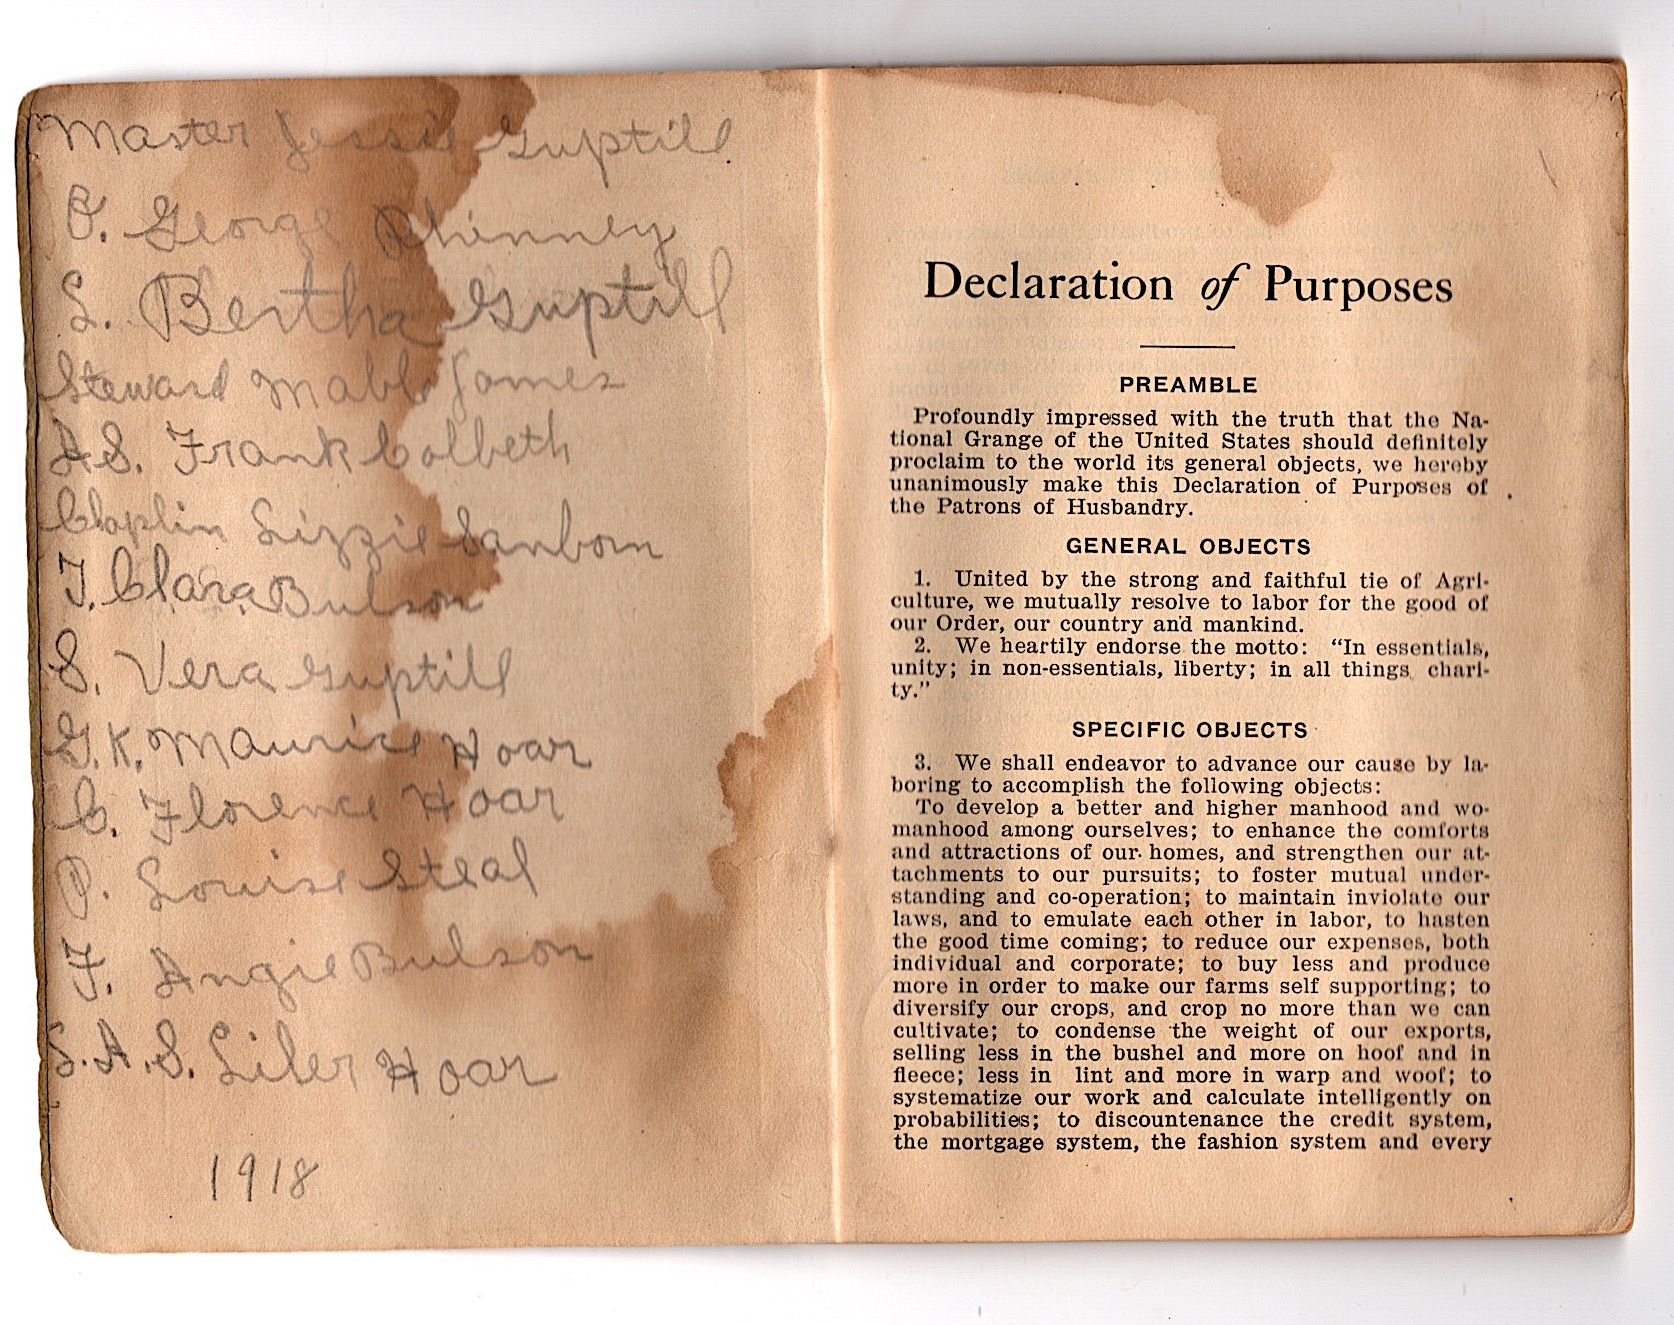 Master Jessie Guptill
O. George Phinney
L. Bertha Guptill
Steward Mable James
A.S. Frank Colbeth
Chaplin Lizzie Sanborn
T. Clara Bulson
S. Vera Guptill
G.K. Maurice Hoar
C. Florence Hoar
P. Louise Steal
F. Angie Bulson
L.A.S. Liler Hoar
1918
Declaration of Purposes
PREAMBLE
Profoundly impressed with the truth that the Na-
tional Grange of the United States should definitely
proclaim to the world its general objects, we hereby
unanimously make this Declaration of Purposes of
the Patrons of Husbandry.
GENERAL OBJECTS
1. United by the strong and faithful tie of Agri-
culture, we mutually resolve to labor for the good of
our Order, our country and mankind.
2. We heartily endorse the motto: "In essentials,
unity; in non-essentials, liberty; in all things chari-
ty."
SPECIFIC OBJECTS
3. We shall endeavor to advance our cause by la-
boring to accomplish the following objects:
To develop a better and higher manhood and wo-
manhood among ourselves; to enhance the comforts
and attractions of our homes, and strengthen our at-
tachments to our pursuits; to foster mutual under-
standing and co-operation; to maintain inviolate our
laws, and to emulate each other in labor, to hasten
the good time coming; to reduce our expenses, both
individual and corporate; to buy less and produce
more in order to make our farms self supporting; to
diversify our crops, and crop no more than we can
cultivate; to condense the weight of our exports,
selling less in the bushel and more on hoof and in
fleece; less in lint and more in warp and woof; to
systematize our work and calculate intelligently on
probabilities; to discountenance the credit system,
the mortgage system, the fashion system and every